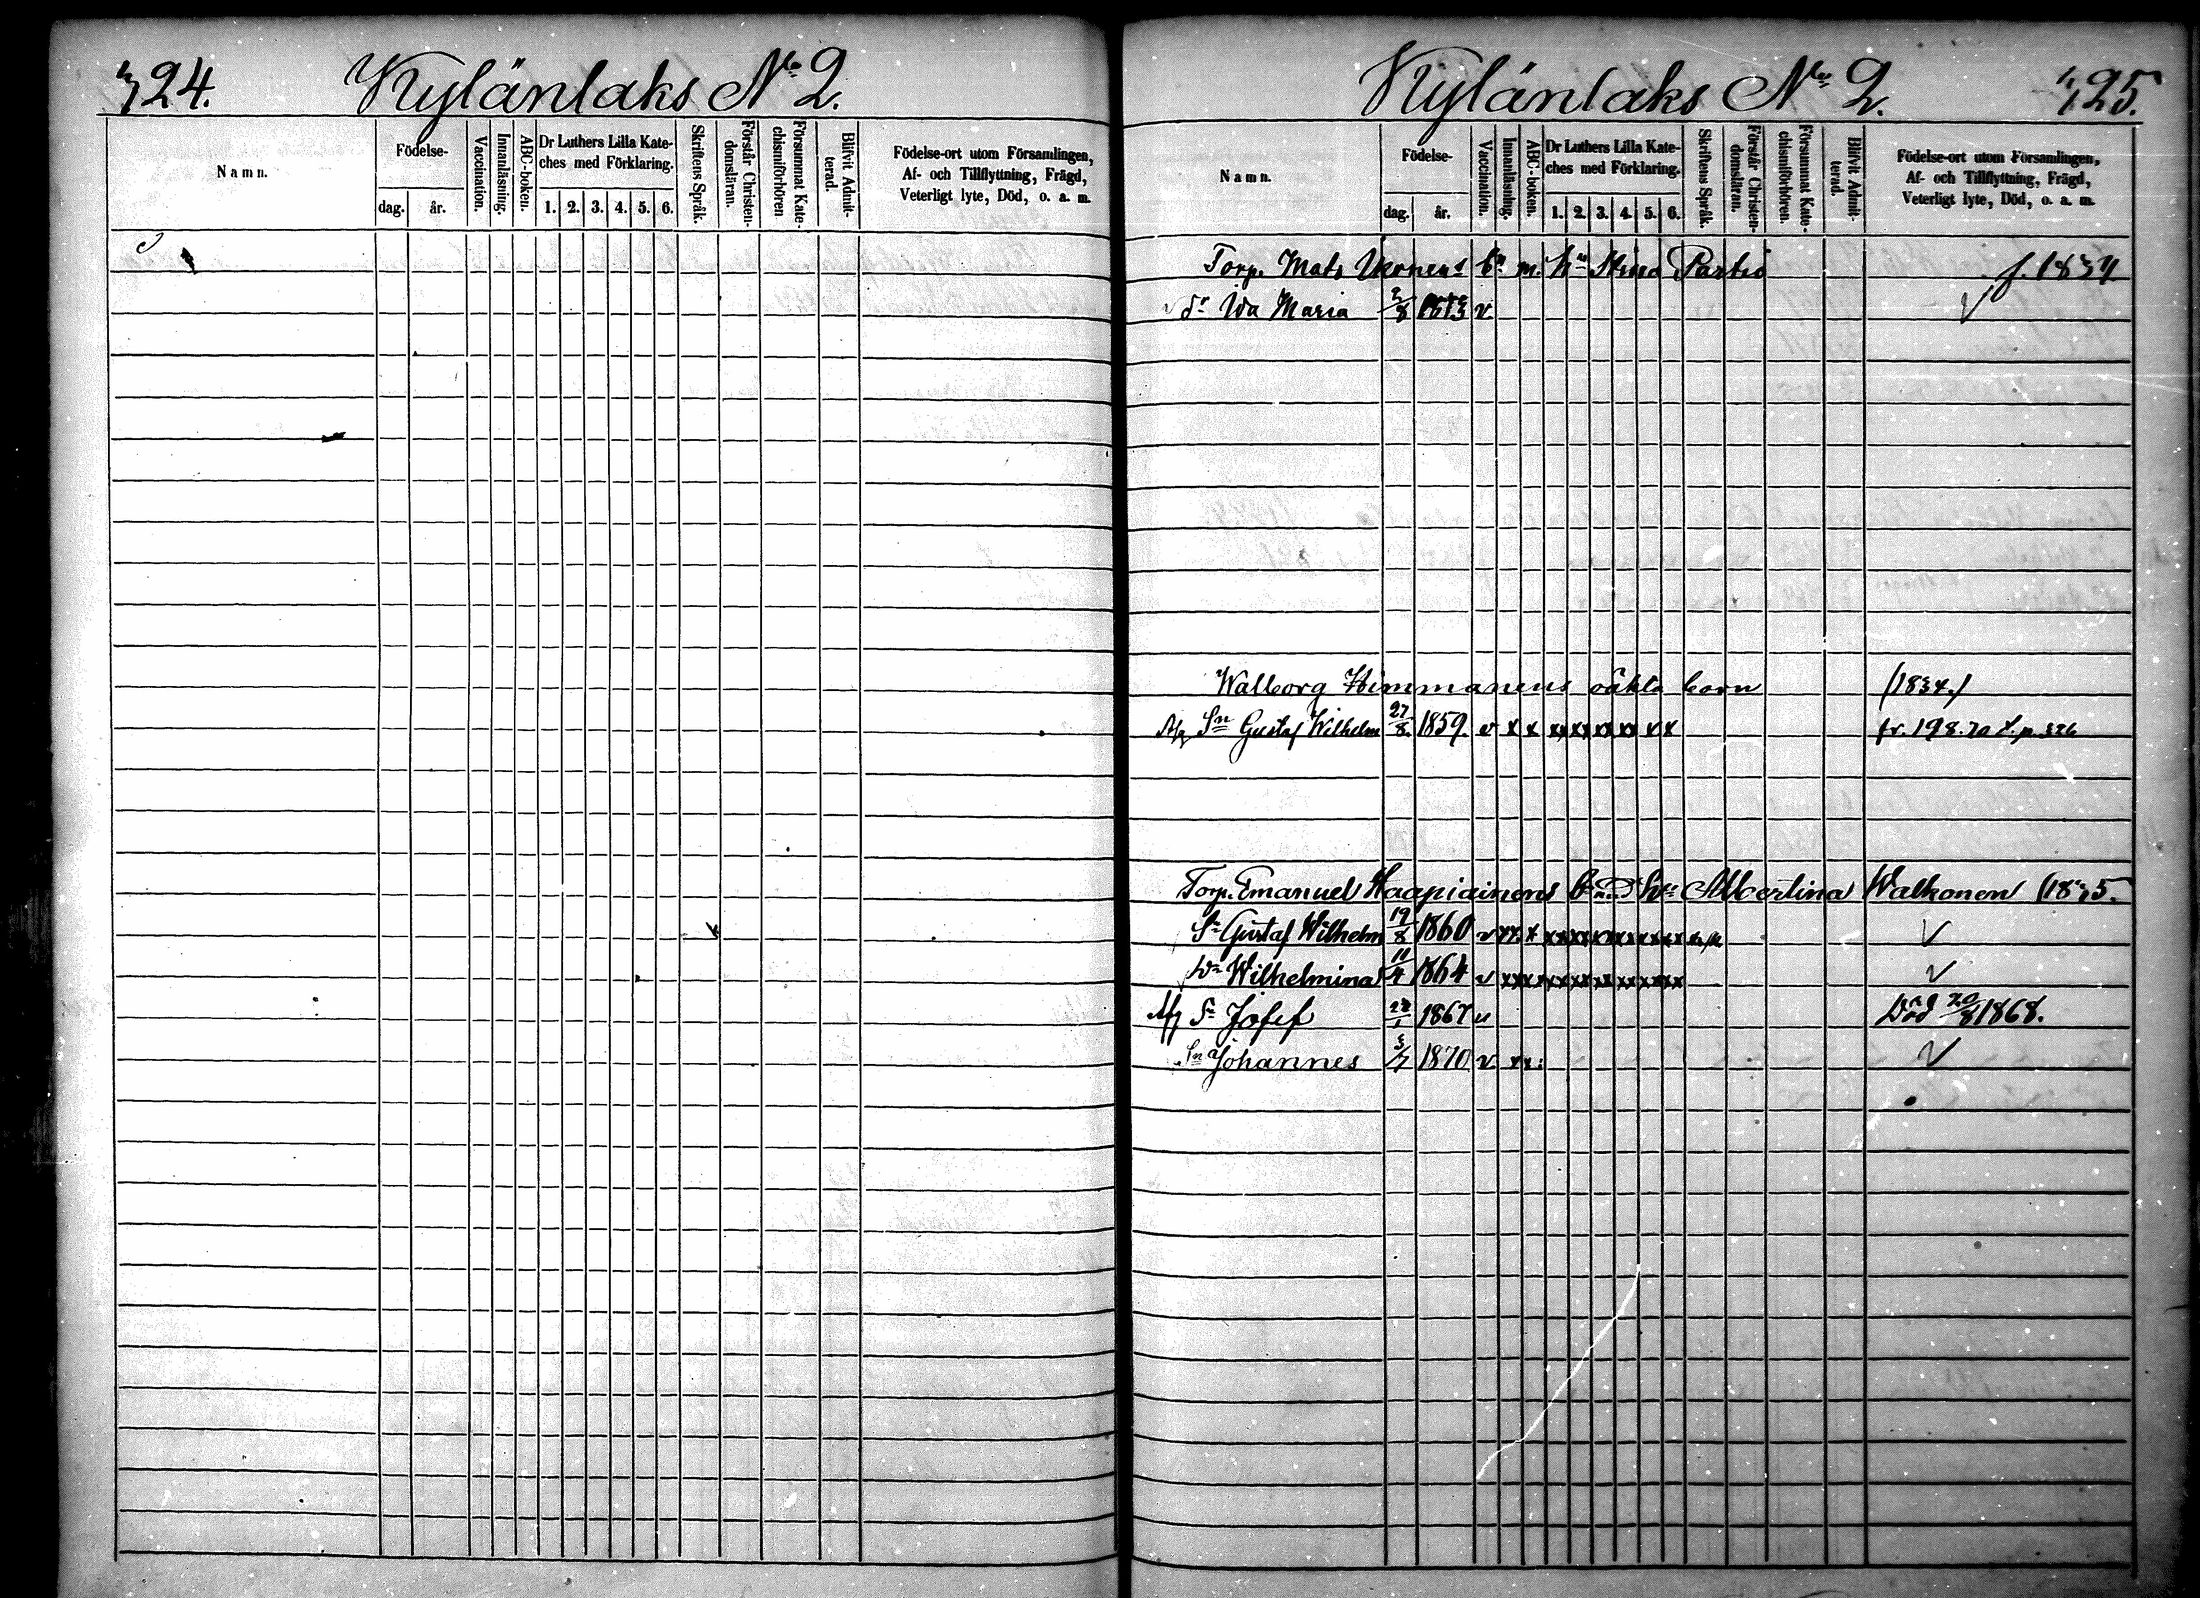 324.
Kylänlaks No 2.
Namn.
Födelse-
dag.
år.
Vaccination.
Innanläsning.
ABC-boken.
Dr Luthers Lilla Kate-
ches med Förklaring.
1. 2. 3. 4. 5. 6.
Skriftens Språk.
Förstår Christen-
domsläran.
Försummat Kate-
chismiförhören
Blifvit Admit-
terad.
Födelse-ort utom Församlingen,
Af- och Tillflyttning, Frägd,
Veterligt lyte, Död, o. a. m.
Kylänlaks No 2.
325.
Namn.
Födelse-
dag.
år.
Vaccination.
Innanläsning.
ABC-boken.
Dr Luthers Lilla Kate-
ches med Förklaring.
1. 2. 3. 4. 5. 6.
Skriftens Språk.
Förstår Christen-
domsläran.
Försummat Kate-
chismiförhören.
Blifvit Admit-
terad.
Födelse-ort utom Församlingen,
Af- och Tillflyttning, Frägd,
Veterligt lyte, Död, o. a. m.
Torp. Mats bn m. hu Stina Partio f. 1834
dr Ida Maria 2/8 1873 v √
Walborg Himmanens oäkta barn (1834.)
Afg Sn Gustaf Wilhelm 27/8. 1859. v x x xx xx xx xx x x fr. 198.
Torp. Emanuel Haapiainens bn m. hu Albertina Walkonen
Sn Gustaf Wilhelm 19/8 1860 v xx x xx xx xx xx xx xx √
Dr Wilhelmina 11/4 1864 v xx xx xx xx xx xx xx √
Afg Sn Josef 1867 v Död 20/8 1868.
Sn Johannes 5/7 1870 v xx: √